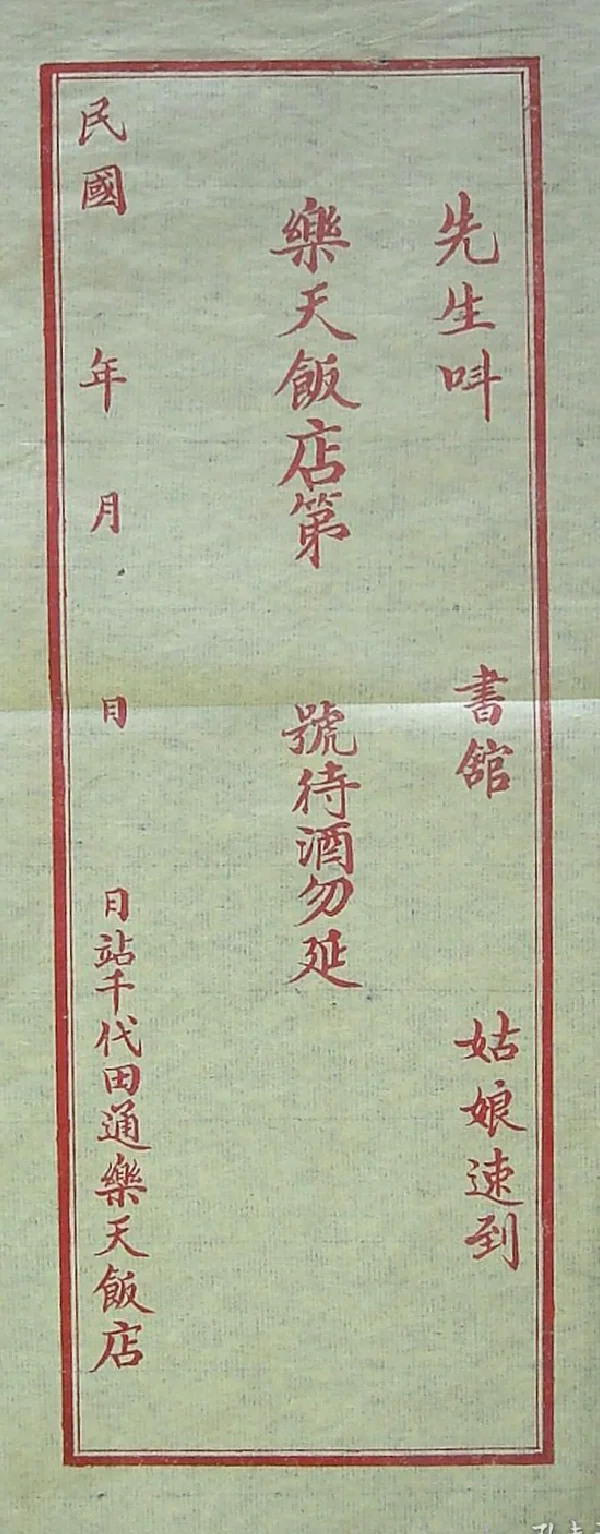 先生呌 書舘 姑娘速到
樂天飯店第 號待酒勿延
民國 年 月 日 日站千代田通樂天飯店